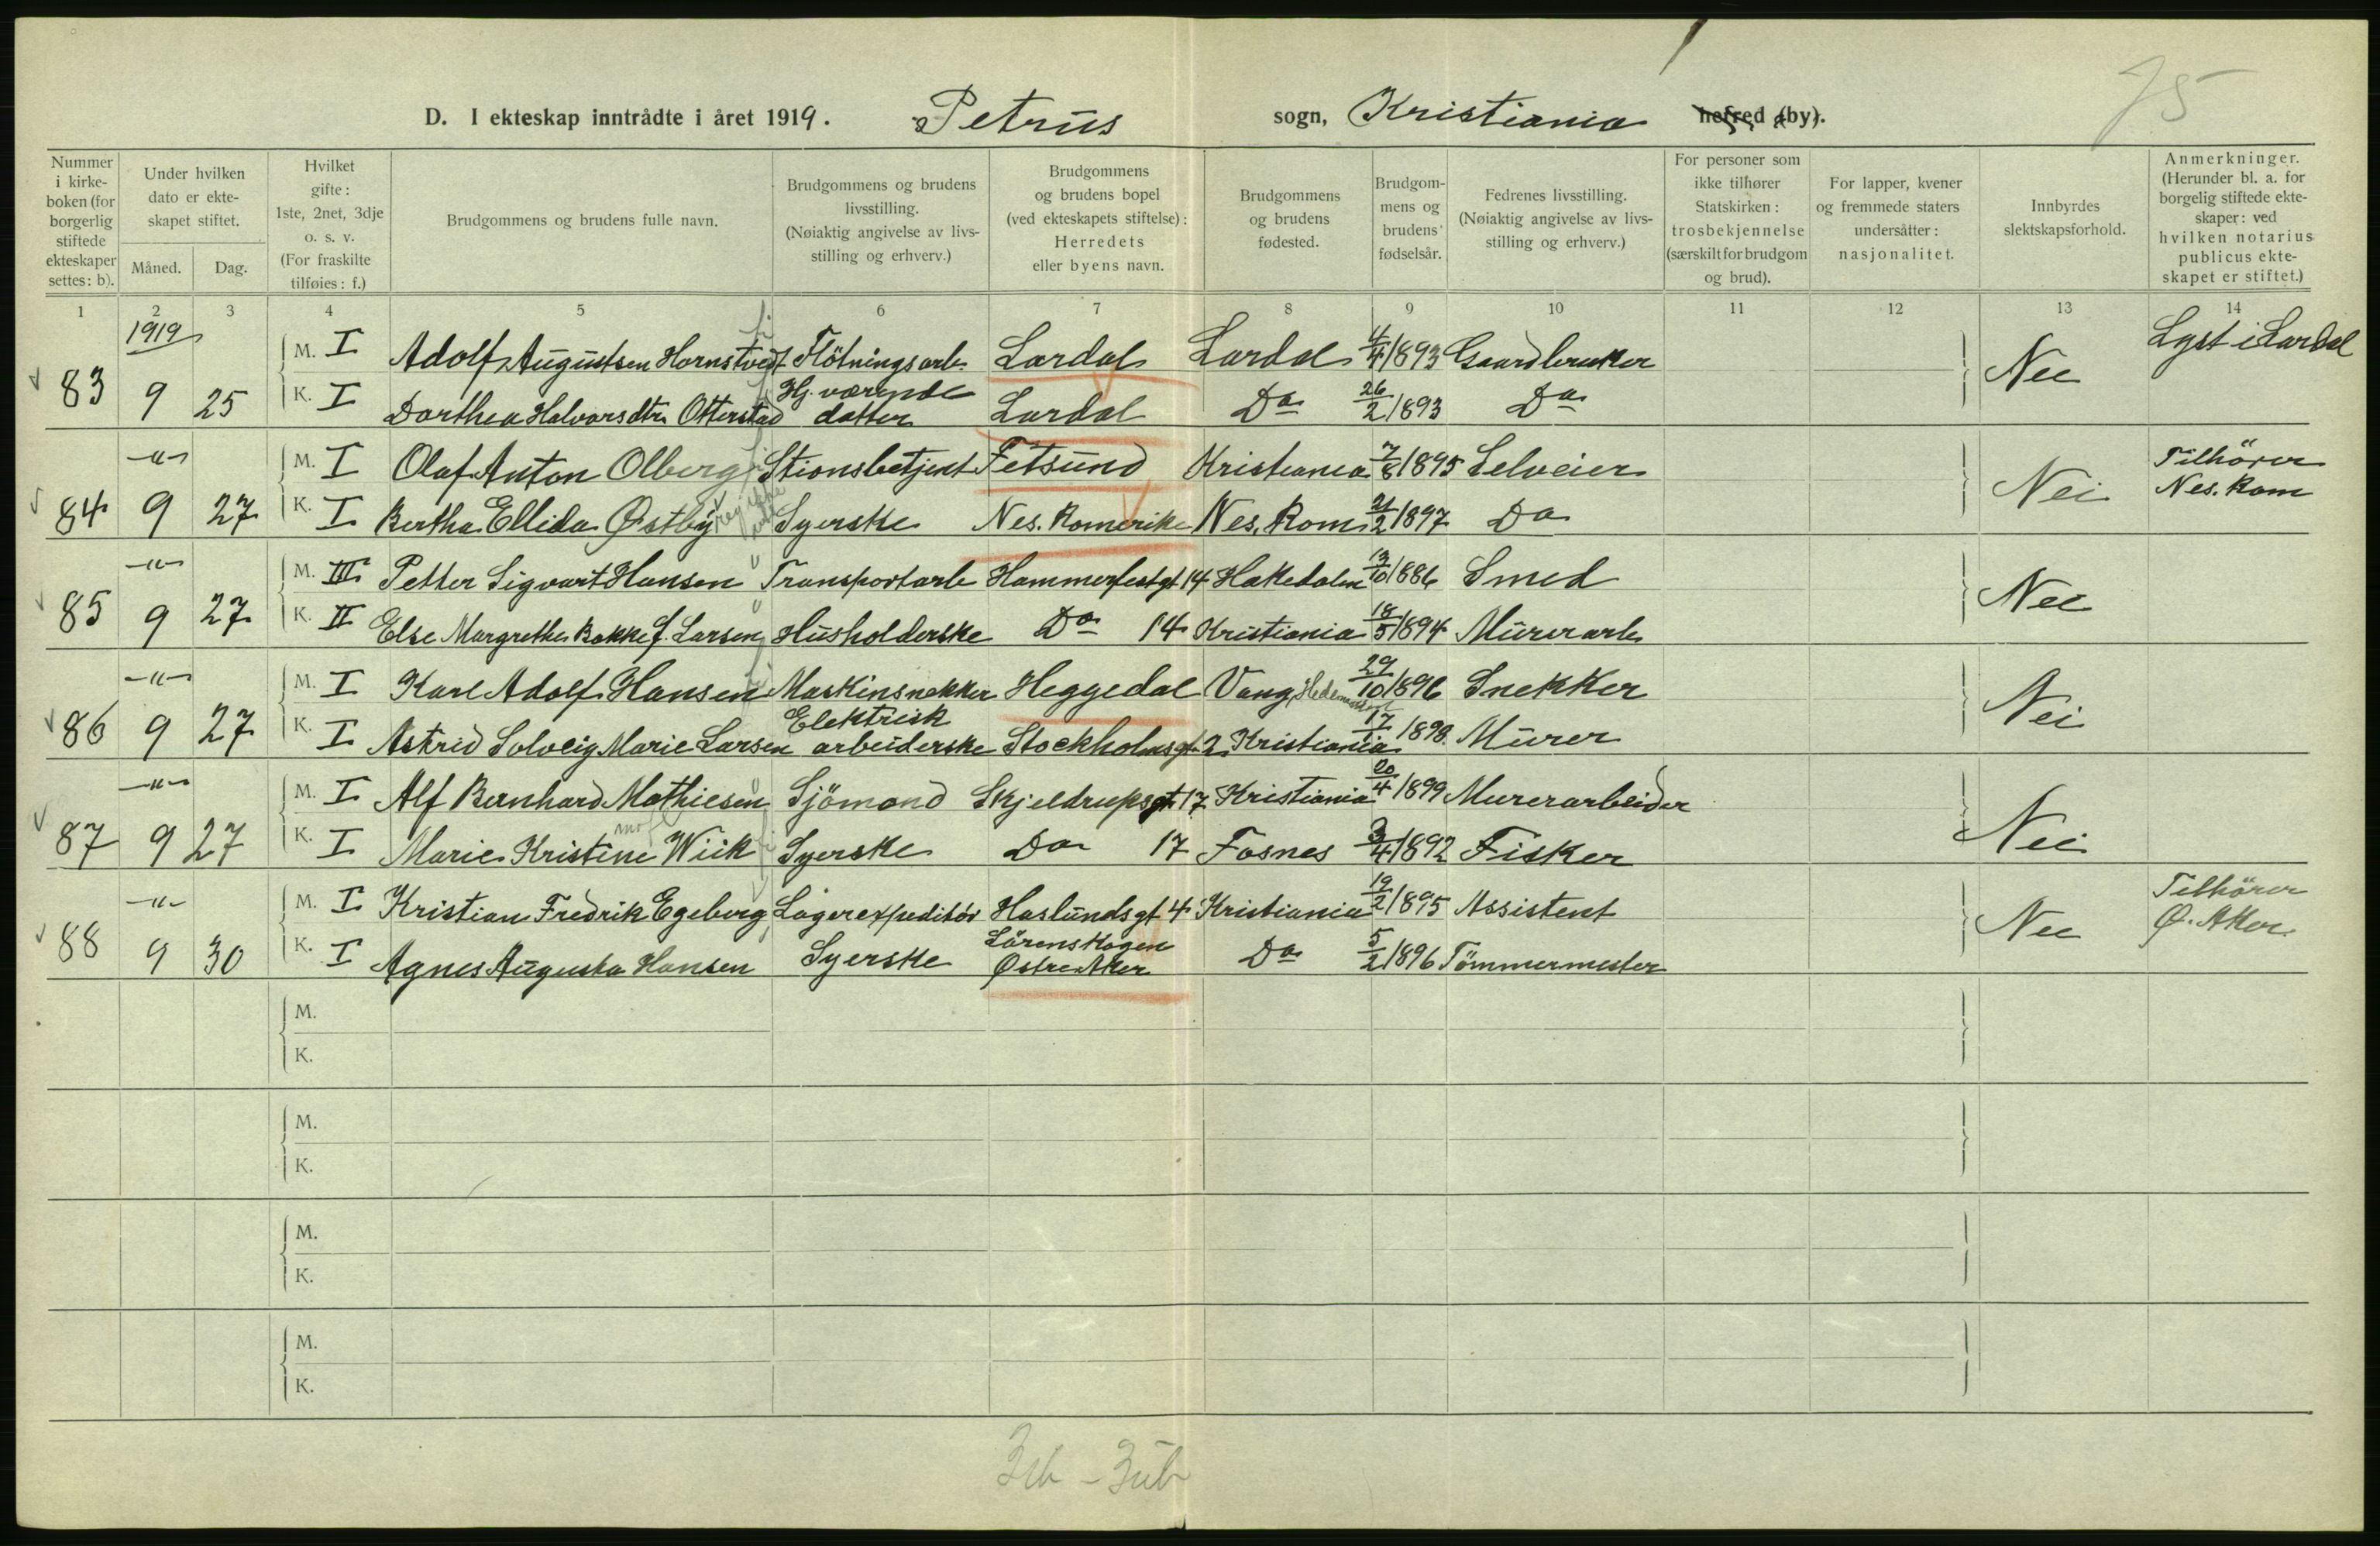 75
D. I ekteskap inntrådte i året 1919. Petrus sogn, Kristiania herred (by).
Nummer i kirkeboken (for borgerlig stiftede ekteskaper settes: b).
Under hvilken dato er ekteskapet stiftet.
Måned. Dag.
Hvilket gifte: 1ste, 2net, 3dje o. s. v. (For fraskilte tilføies: f.)
Brudgommens og brudens fulle navn.
Brudgommens og brudens livsstilling. (Nøiaktig angivelse av livsstilling og erhverv.)
Brudgommens og brudens bopel (ved ekteskapets stiftelse): Herredets eller byens navn.
Brudgommens og brudens fødested.
Brudgommens og brudens fødselsår.
Fedrenes livsstilling. (Nøiaktig angivelse av livsstilling og erhverv.)
For personer som ikke tilhører Statskirken: trosbekjennelse (særskilt for brudgom og brud).
For lapper, kvener og fremmede staters undersåtter: nasjonalitet.
Innbyrdes slektskapsforhold.
Anmerkninger. (Herunder bl. a. for borgelig stiftede ekteskaper: ved hvilken notarius publicus ekteskapet er stiftet.)
1 2 3 4 5 6 7 8 9 10 11 12 13 14
1919
M. I Adolf Augustsen Hornstvedt Flötningsarb. Lardal Lardal 4/4 1893 Gaardbruker Lyst i Lardal
83 9 25 K. I Dorthea Halvorsdtr. Otterstad Hj. værende datter Lardal Do 26/2 1893 Do Nei
-"- M. I Olaf Anton Olberg Stionsbetjent Fetsund Kristiania 7/8 1895 Selveier Tilhörer
84 9 27 K. I Bertha Ellida Østby Syerske Nes. Romerike Nes. Rom 21/2 1897 Do Nei Nes. Rom
-"- M. III Petter Sigvart Hansen Transportarb Hammerfestgt 14 Hakedalen 13/10 1886 Smed
85 9 27 K. II Else Margrethe Bakke f. Larsen Husholderske Do 14 Kristiania 18/5 1894 Murerarb Nei
-"- M. I Karl Adolf Hansen Maskinsnekker Heggedal Vang Hedemarken 29/10 1896 Snekker
86 9 27 K. I Astrid Solveig Marie Larsen Elektrisk arbeiderske Stockholmsgt. 2 Kristiania 17/1 1898 Murer Nei
-"- M. I Alf Bernhard Mathiesen Sjömand Skjeldrupsgt 17 Kristiania 20/4 1899 Murerarbeider
87 9 27 K. I Marie Kristine Wiik Syerske Do 17 Fosnes 3/4 1892 Fisker Nei
-"- M. I Kristian Fredrik Egeberg Lagerexpeditör Haslundsgt 4 Kristiania 19/2 1895 Assistent Tilhörer
88 9 30 K. I Agnes Augusta Hansen Syerske Lörenskogen Østre Aker Do 5/2 1896 Tömmermester Nei Ø. Aker
M.
K.
M.
K.
M.
K.
M.
K.